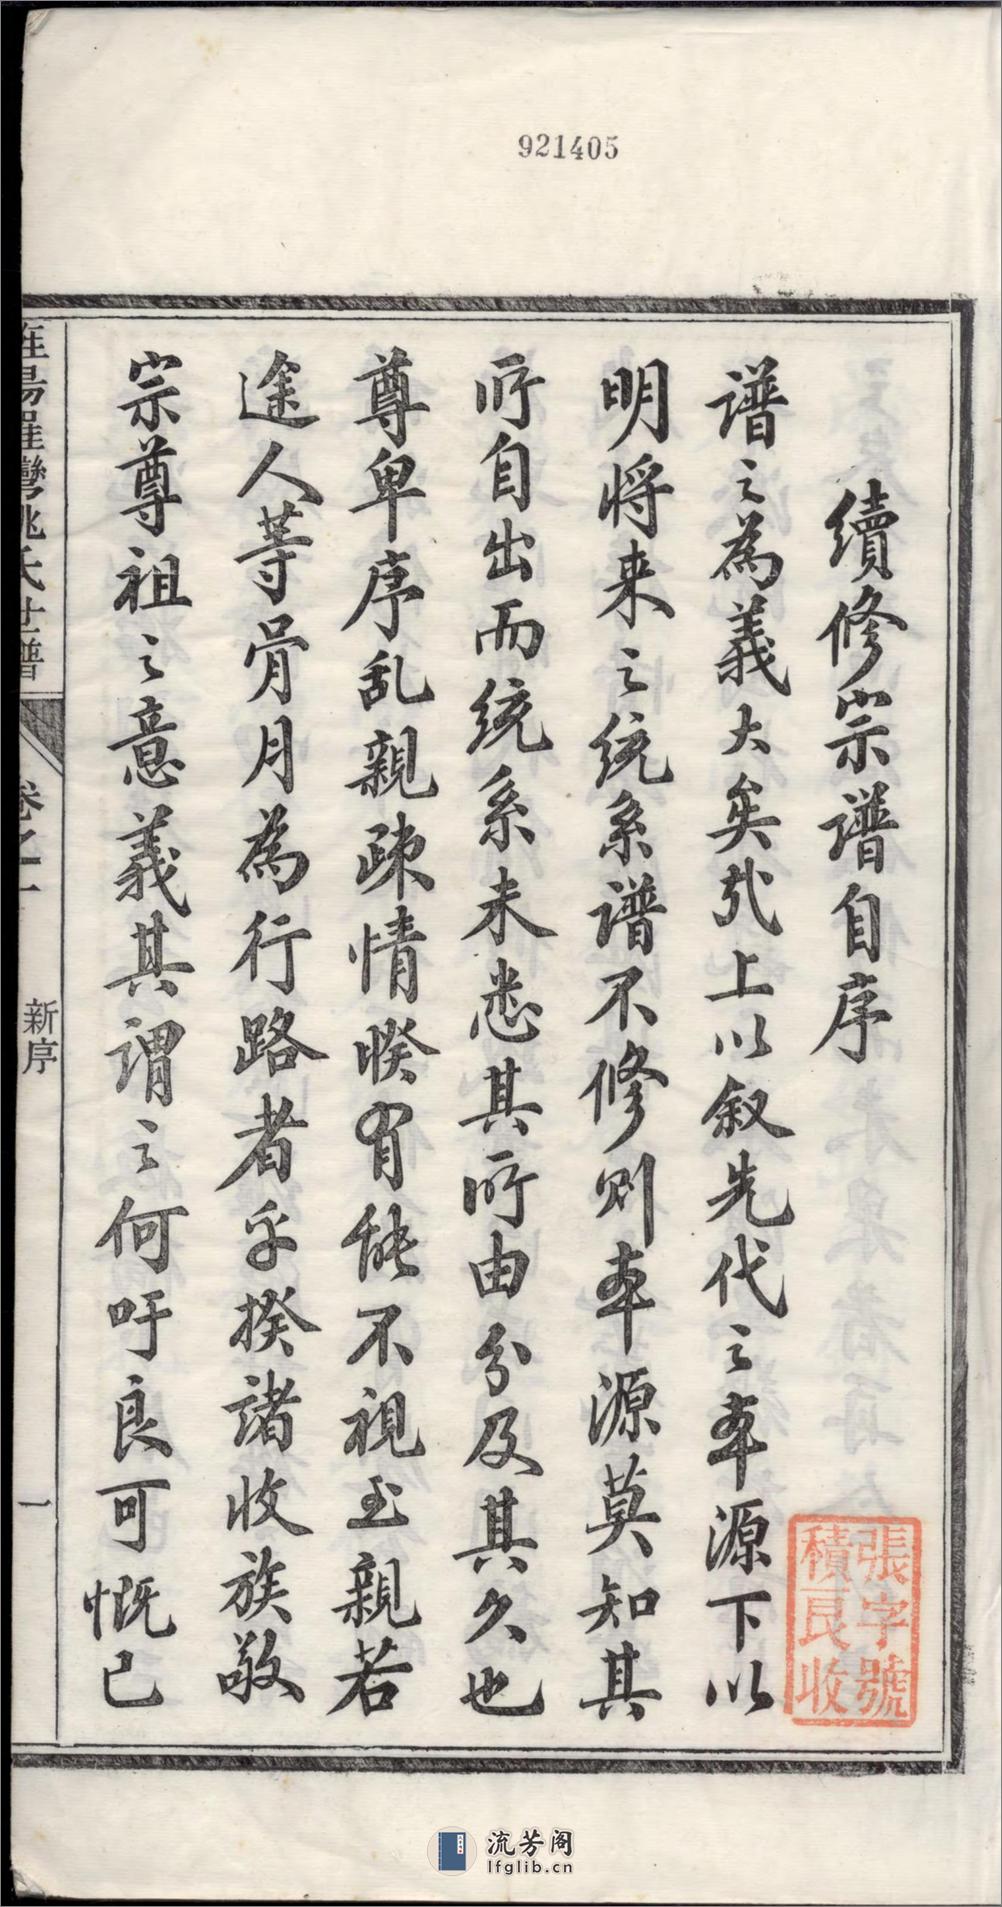 921405
續修宗譜自序
譜之為義大矣哉上以叙先代之本源下以
明將来之统系譜不修则本源莫知其
所自出而统系未悉其所由分及其久也
尊卑序乱親疎情暌有能不視至親若
途人等骨月為行路者乎揆諸收族敬
宗尊祖之意義其謂之何吁良可慨已
張字號
積良收
姚氏世譜
卷之一
新序
一
流芳阁
lfglib.cn